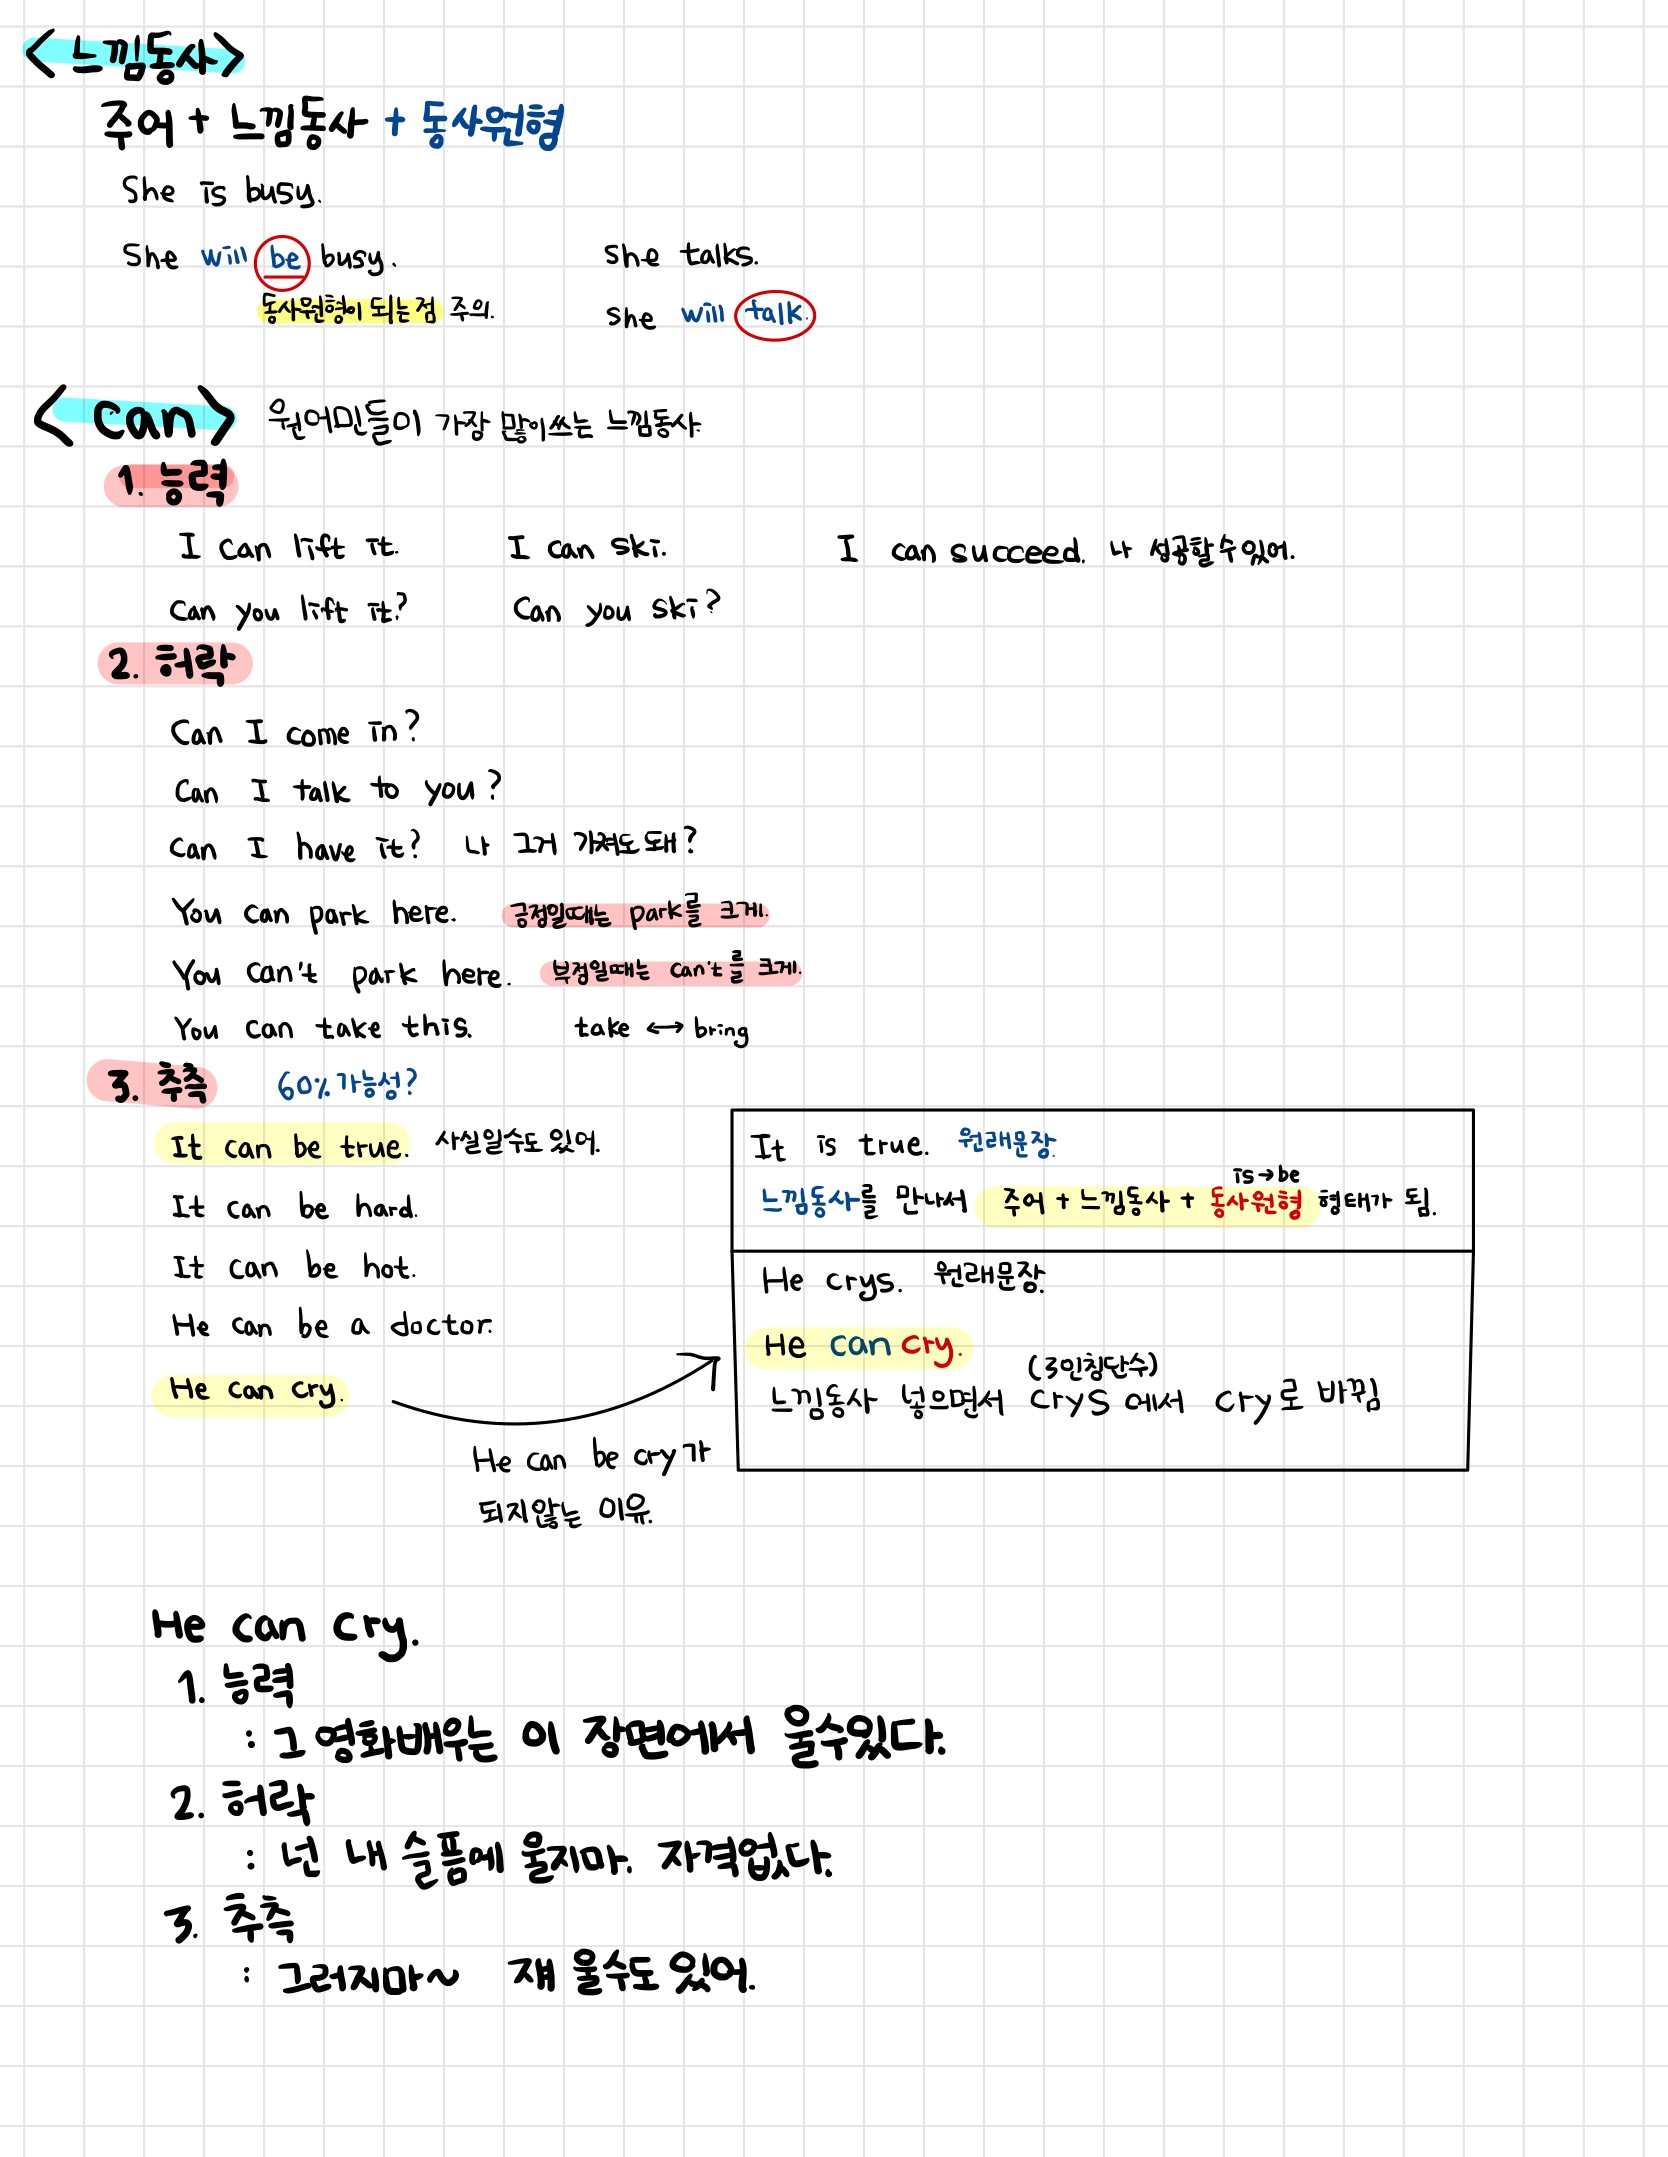 <느낌동사>
주어 + 느낌동사 + 동사원형
She is busy.
She will be busy.
동사원형이 되는점 주의.
She talks.
She will talk.
<can> 원어민들이 가장 많이쓰는 느낌동사.
1. 능력
I can lift it. I can ski. I can succeed. 나 성공할수있어.
Can you lift it? Can you ski?
2. 허락
Can I come in?
Can I talk to you?
Can I have it? 나 그거 가져도돼?
You can park here. 긍정일때는 park를 크게.
You can't park here. 부정일때는 can't를 크게.
You can take this. take ↔ bring
3. 추측 60% 가능성?
It can be true. 사실일수도 있어.
It can be hard.
It can be hot.
He can be a doctor.
He can cry.
He can be cry가
되지않는 이유.
It is true. 원래문장.
is→be
느낌동사를 만나서 주어 + 느낌동사 + 동사원형 형태가 됨.
He crys. 원래문장.
He can cry.
(3인칭단수)
느낌동사 넣으면서 crys 에서 cry로 바뀜
He can cry.
1. 능력
: 그 영화배우는 이 장면에서 울수있다.
2. 허락
: 넌 내 슬픔에 울지마. 자격없다.
3. 추측
: 그러지마~ 쟤 울수도 있어.